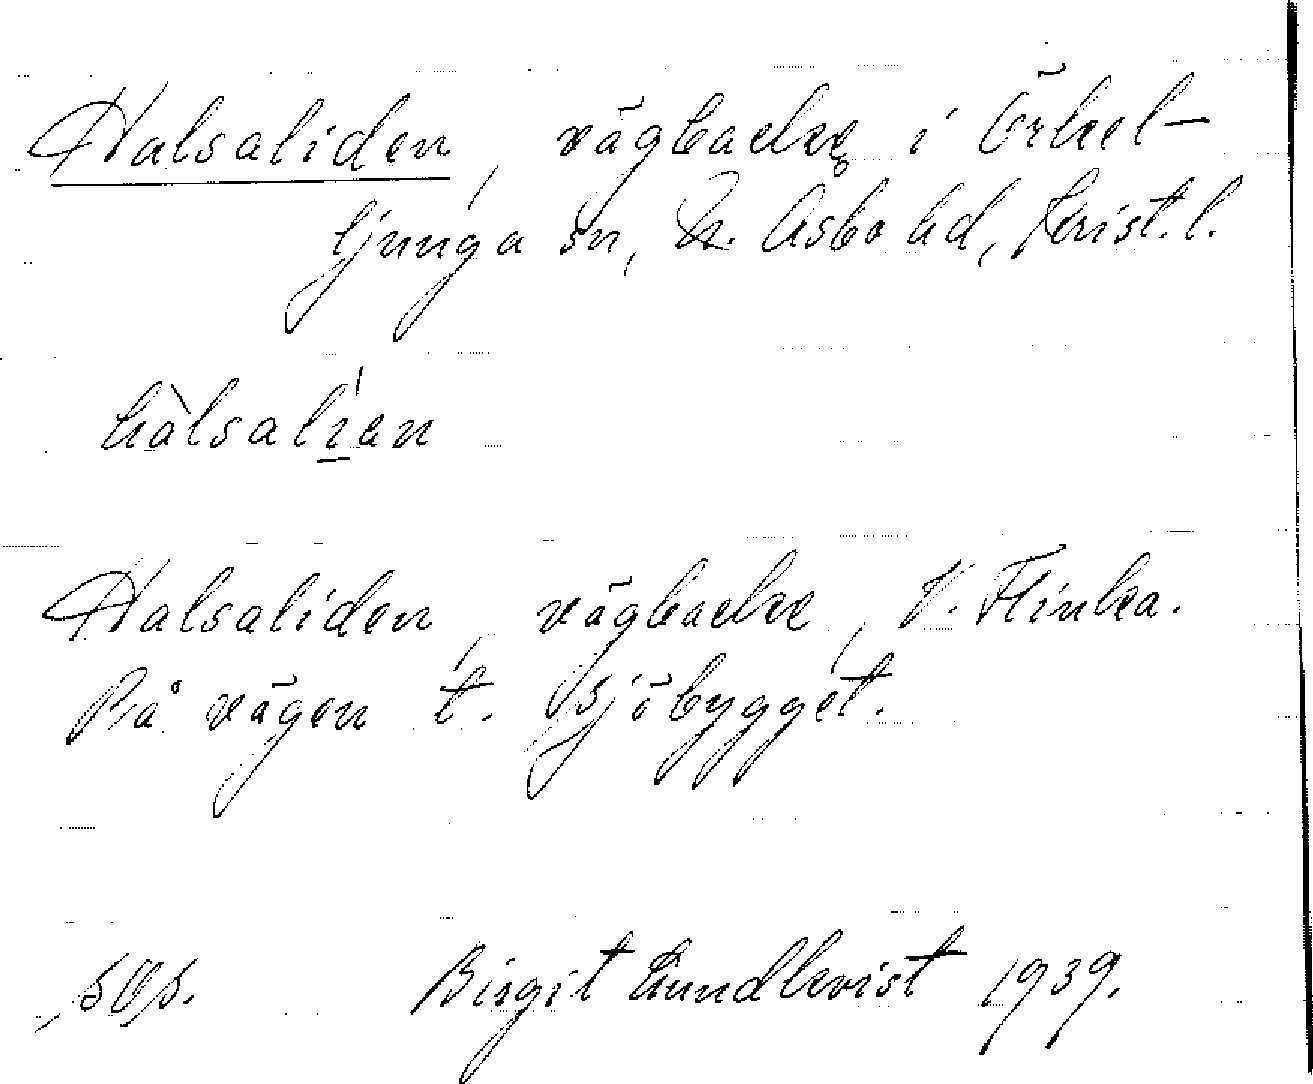 Halsaliden, vägbacke i Örkel-
ljunga sn, N. Åsbo hd, Krist. l.
hàlsalı́an
Halsaliden, vägbacke, V. Flinka.
På vägen t. Sjöbygget.
Birgit Lundkvist 1939.